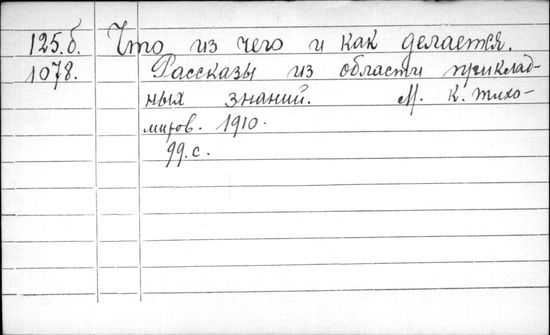 125.б. Что из чего и как делается.
1078. Рассказы из области приклад-
ных знаний. М. К. Тихо-
миров. 1910.
99.с.